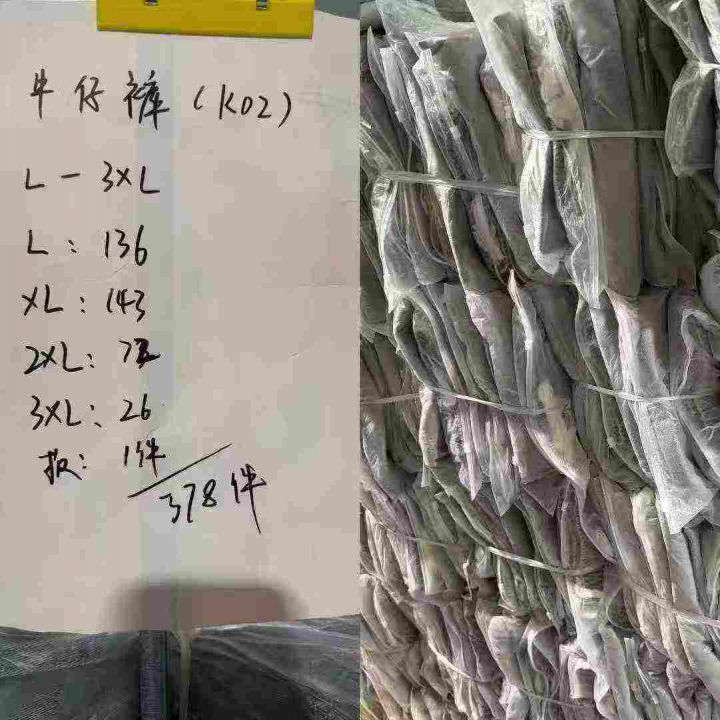 牛仔裤(K02)
L-3XL
L:136
XL:143
2XL:72
3XL:26
报:1件
378件